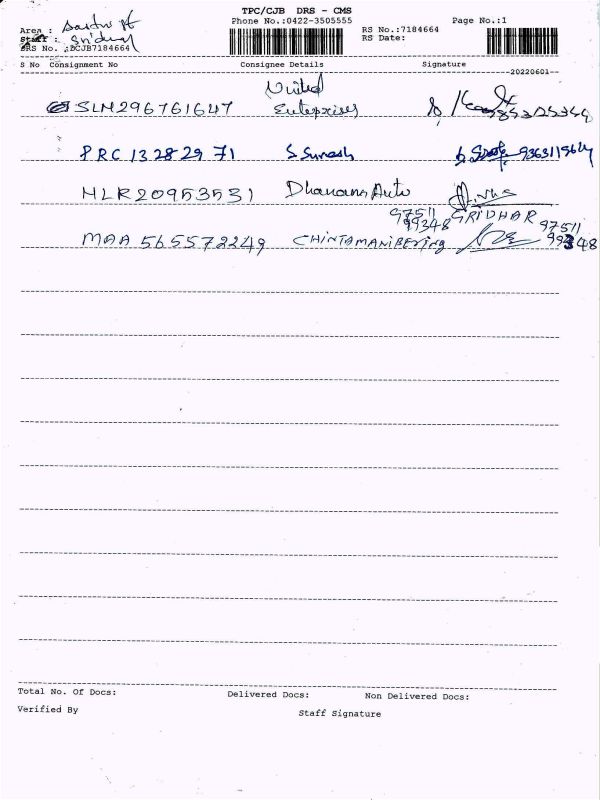 TPC/CJB DRS - CMS
Phone No.:0422-3505555
Page No.:1
Area :
RS No.:7184664
Staff :
RS Date:
DRS No. :DCJB7184664
S No Consignment No Consignee Details Signature
20220601
United
SLM296761647 Enterprises
PRC 13 28 29 71 S Suresh 9363115647
HLR20953531 Dhanam Auto
97511 GRIDHAR 97511
99348 99348
MAA 565572249 CHINTAMANI
Total No. Of Docs: Delivered Docs: Non Delivered Docs:
Verified By Staff Signature